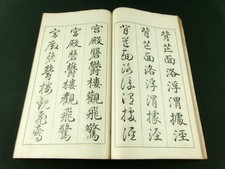 背芒面洛浮渭據涇
背芒面洛浮渭據涇
背芒面洛浮渭據涇
宮殿磐鬱樓觀飛驚
宮殿磐鬱樓觀飛驚
宮殿磐鬱樓觀飛驚